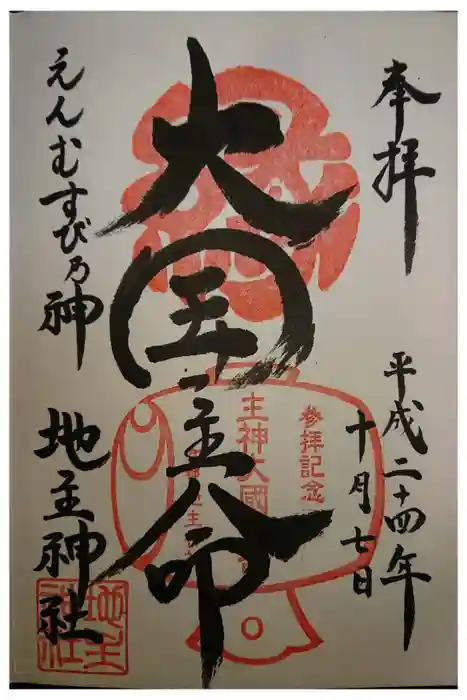 奉拝
平成二十四年
十月七日
大国主命
えんむすび乃神
地主神社
参拝記念
主神大國
地主神社